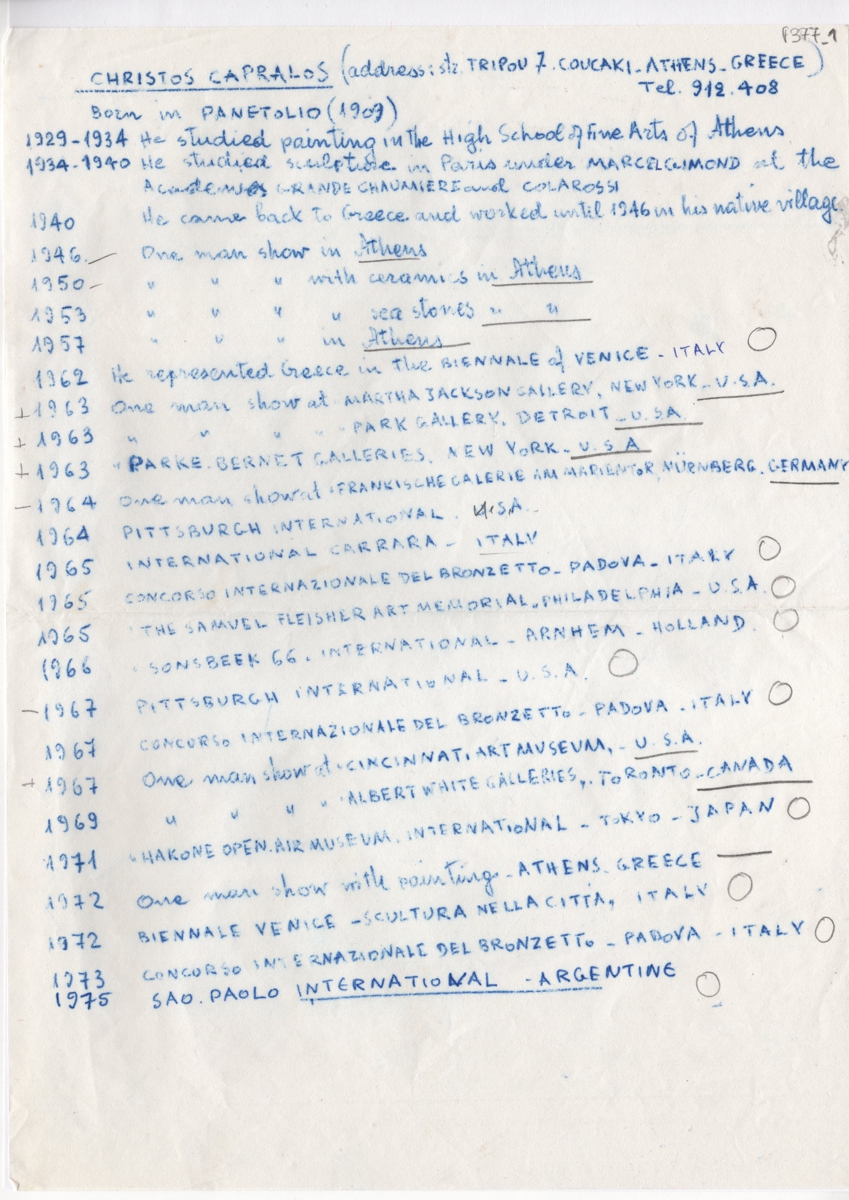 P377_1
CHRISTOS CAPRALOS (address: str. TRIPOU 7. COUCAKI - ATHENS - GREECE)
Tel. 912.408
Born in PANETOLIO (1909)
1929-1934 He studied painting in the High School of Fine Arts of Athens
1934-1940 He studied sculpture in Paris under MARCEL GIMOND at the
Academies GRANDE CHAUMIERE and COLAROSSI
1940 He came back to Greece and worked until 1946 in his native village
1946. One man show in Athens
1950 " " " with ceramics in Athens
1953 " " " " sea stones " "
1957 " " " in Athens
1962 He represented Greece in the BIENNALE of VENICE - ITALY
+ 1963 One man show at MARTHA JACKSON GALLERY, NEW YORK - U.S.A.
+ 1963 " " " " PARK GALLERY. DETROIT - U.S.A.
+ 1963 " PARKE. BERNET GALLERIES. NEW YORK - U.S.A
- 1964 One man show at FRANKISCHE GALERIE AM MARIENTOR, NÜRNBERG. GERMANY
1964 PITTSBURGH INTERNATIONAL. U.S.A.
1965 INTERNATIONAL CARRARA - ITALY
1965 CONCORSO INTERNAZIONALE DEL BRONZETTO - PADOVA - ITALY
1965 " THE SAMUEL FLEISHER ART MEMORIAL, PHILADELPHIA - U.S.A.
1966 " SONSBEEK 66. INTERNATIONAL - ARNHEM - HOLLAND
- 1967 PITTSBURGH INTERNATIONAL - U.S.A.
1967 CONCURSO INTERNAZIONALE DEL BRONZETTO - PADOVA - ITALY
+ 1967 One man show at CINCINNATI ART MUSEUM, - U.S.A.
1969 " " " " ALBERT WHITE GALLERIES, TORONTO - CANADA
1971 " HAKONE OPEN. AIR MUSEUM. INTERNATIONAL - TOKYO - JAPAN
1972 One man show with painting - ATHENS. GREECE
1972 BIENNALE VENICE - SCULTURA NELLA CITTÀ, ITALY
1973 CONCORSO INTERNAZIONALE DEL BRONZETTO - PADOVA - ITALY
1975 SAO. PAOLO INTERNATIONAL - ARGENTINE